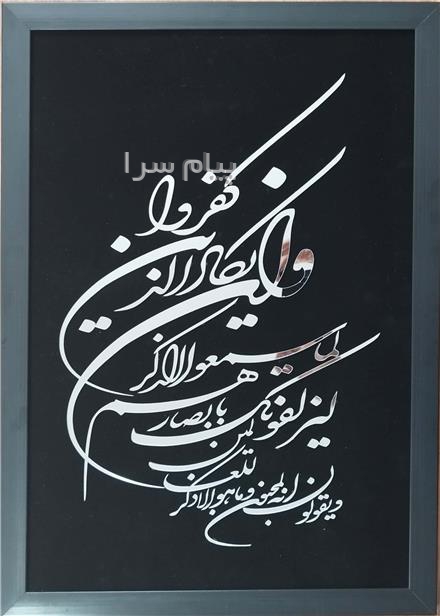 پیام سرا
وان یکاد الذین کفروا
لیزلقونک بابصارهم
لما سمعوا الذکر
ویقولون انه لمجنون وما هو الا ذکر
للعلمین